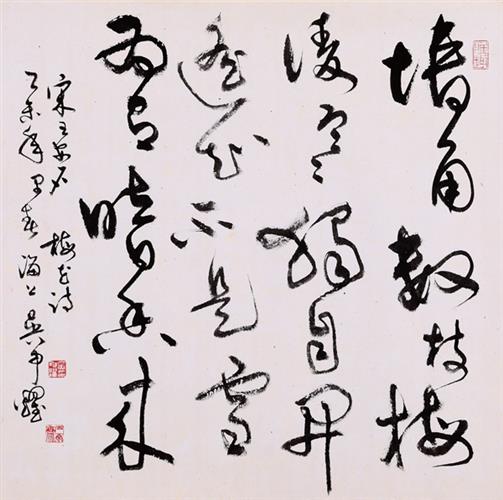 墙角数枝梅
凌寒独自开
遥知不是雪
为有暗香来
宋王安石 梅花诗
乙未年早春 海上吴申耀